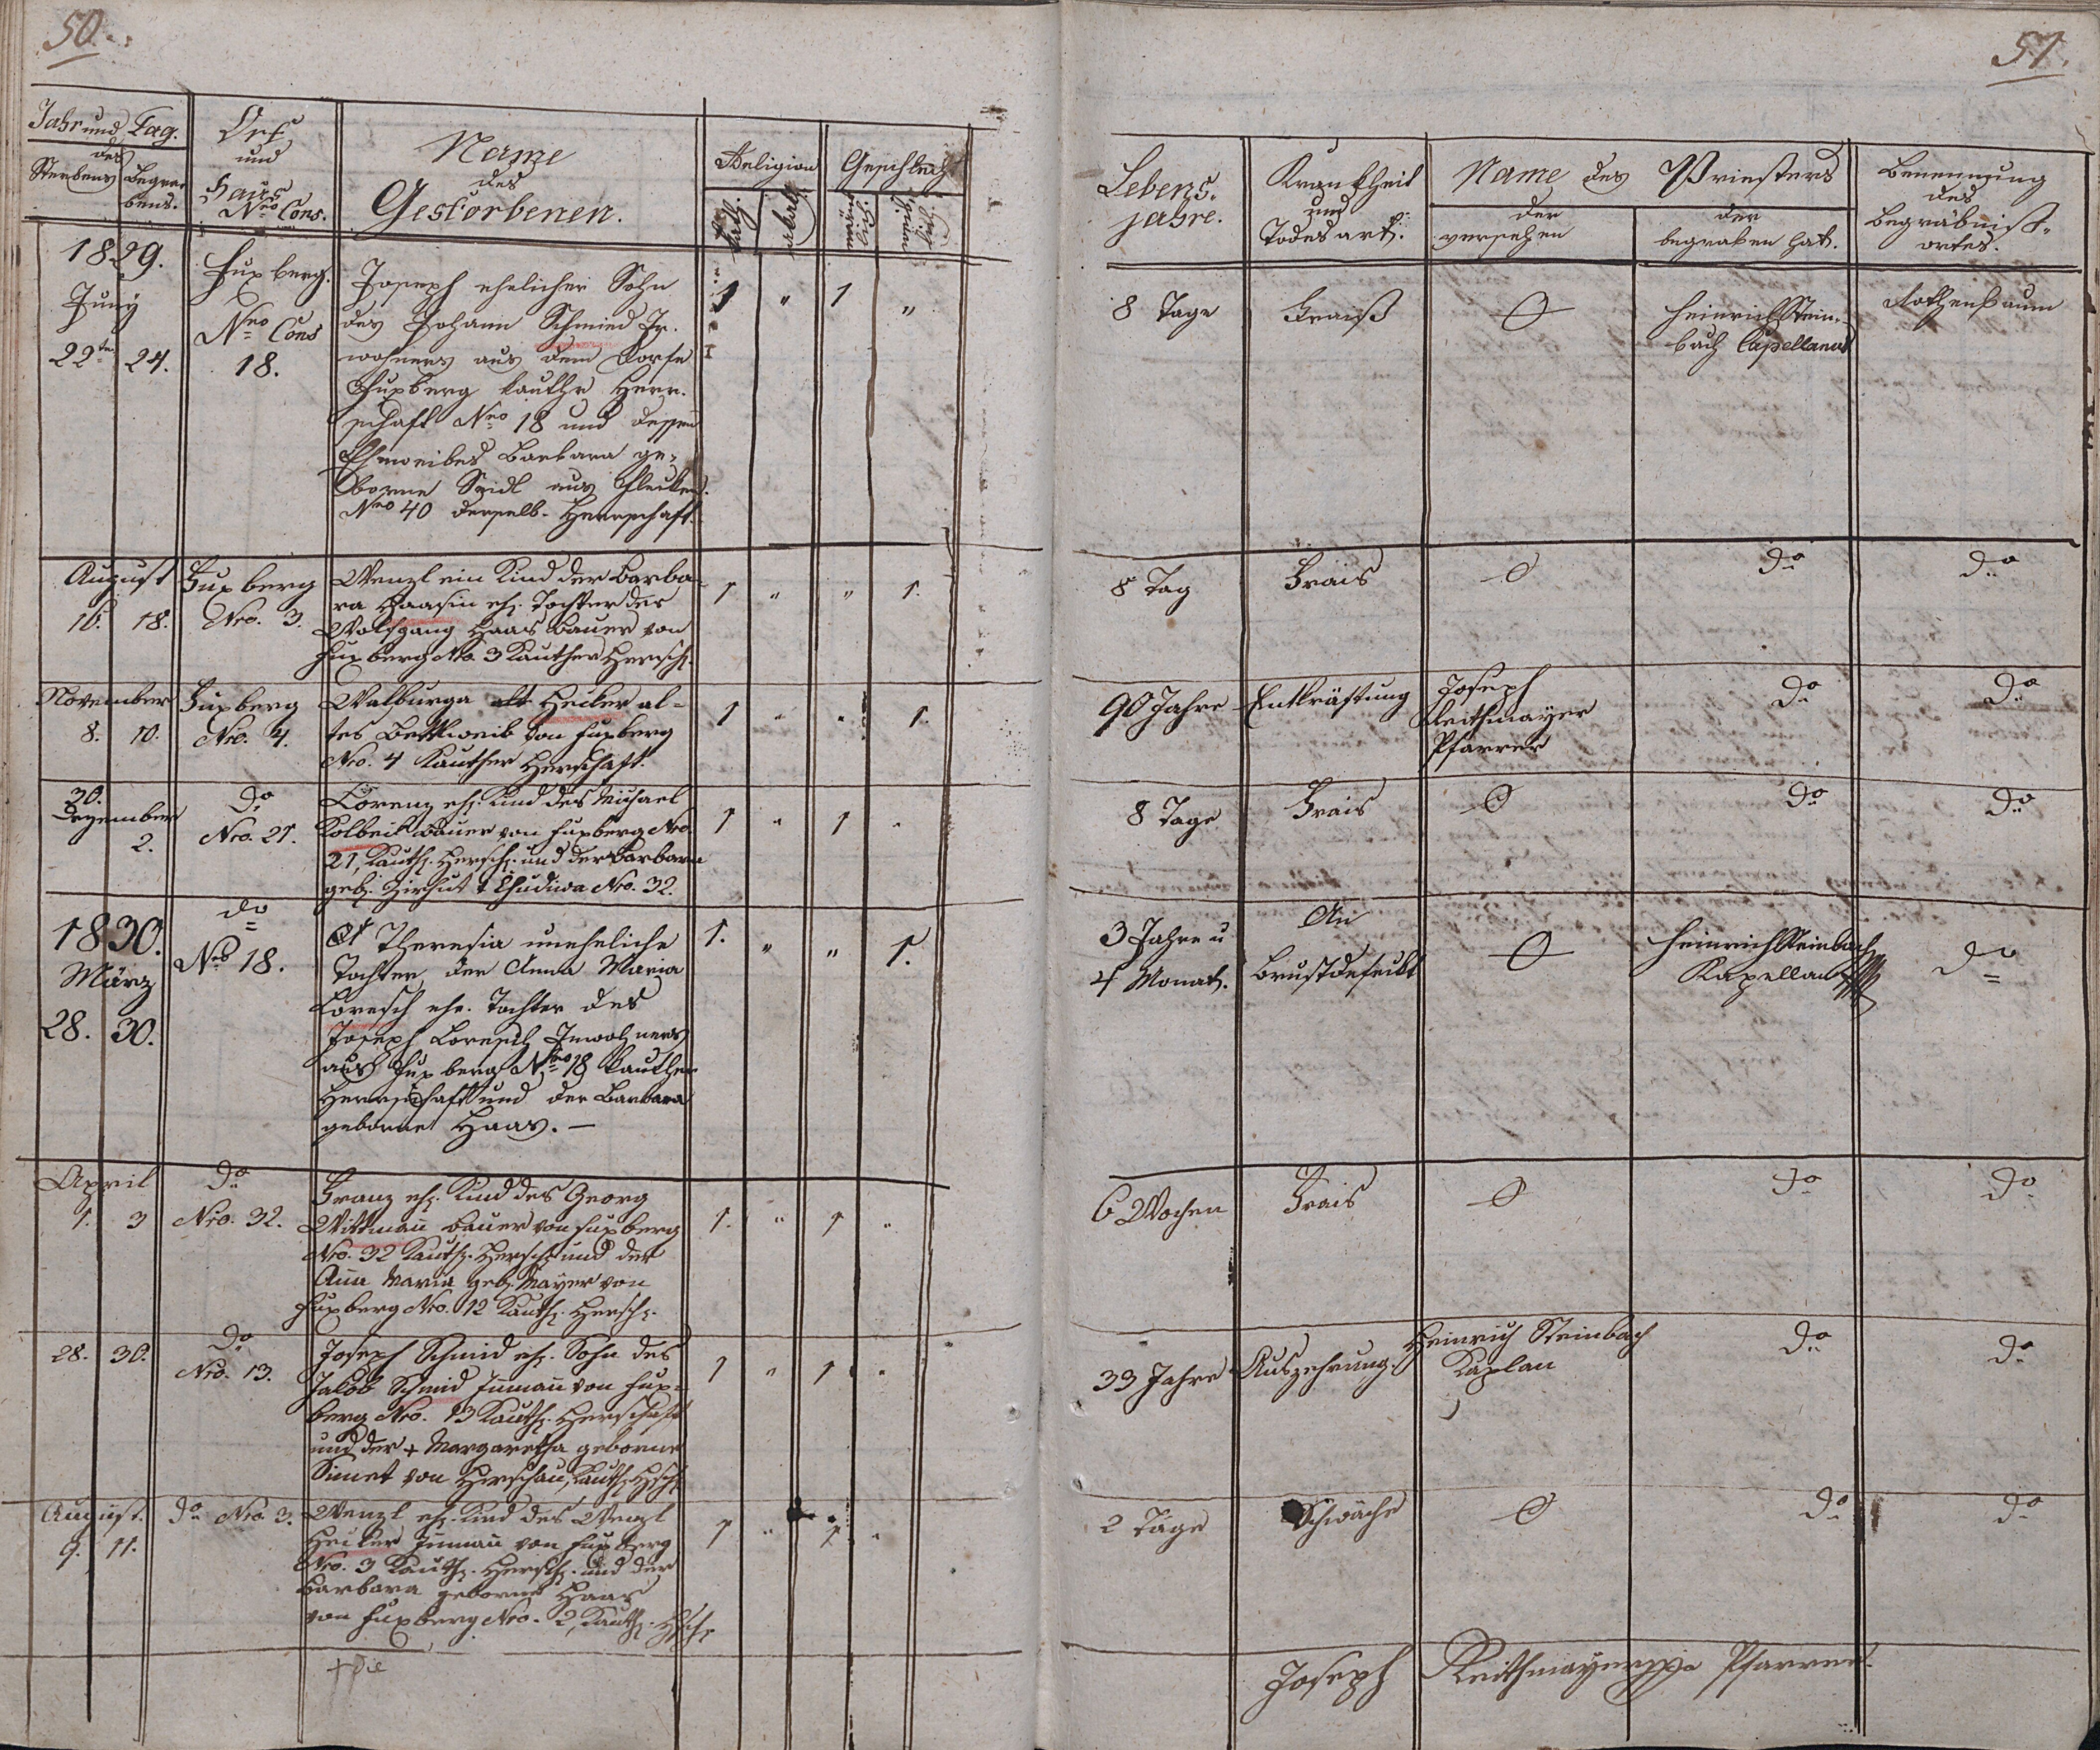 50.
Jahr und Tag.
des
Sterbens
Begra-
bens.
Ort
und
Haus
Nro Cons.
Name
des
Gestorbenen.
Religion
kath.
Geschlecht
männ
lich
weib
lich
1829.
Juny
22te
24.
Fuxberg.
Nro Cons
18.
Joseph ehelicher Sohn
des Johann Schmied In-
wohners aus dem Dorfe
Fuxberg kauther Herr-
schaft Nro 18 und dessen
Eheweibes Barbara ge-
borne Seidl aus
Nro 40 derselb. Herrschaft.
1 " 1 "
August
16. 18.
Fuxberg
Nro. 3.
Wenzl ein Kind der Barba-
ra Haasin eh. Tochter des
Wolfgang Haas Bauer von
Fuxberg No. 3 Kauther Hersch.
1 " " 1.
November
8. 10.
Fuxberg
Nro. 4.
Walburga Heiker al-
tes Bettlweib von Fuxberg
Nro. 4 Kauther Herschaft.
1 " " 1.
30.
Dezember
2.
Do
Nro. 21.
Lorenz eh. Kind des Michael
Kolbeck Bauer von Fuxberg Nro
21, Kauth. Hersch. und der Barbara
geb. Zirhut v. Chudiwa Nro. 32.
1 " 1 "
1830.
März
28. 30.
do
Nro 18.
Theresia uneheliche
Tochter der Anna Maria
Loresch ehe. Tochter des
Joseph Loresch Inwohners
aus Fuxberg Nro 18 Kauther
Herrschaft und der Barbara
geborne Haas. —
1. " " 1.
April
1. 3
Do
Nro. 32.
Franz eh. Kind des Georg
Wittmañ Bauer von Fuxberg
Nro. 32 Kauth. Hersch. und der
Aña Maria geb. Mayer von
Fuxberg Nro. 12 Kauth. Hersch.
1. " 1 "
28. 30.
Do
Nro. 13.
Joseph Schmid eh. Sohn des
Jakob Schmid Iñmañ von Fux-
berg Nro. 13 Kauth. Herschaft
und der + Margaretha geborne
Simet von Hirschau, Kauth. Hsch.
1 " 1 "
August.
9. 11.
Do Nro. 3.
Wenzl eh. Kind des Wenzl
Heiker Iñmañ von Fuxberg
Nro. 3 Kauth. Hersch. und der
Barbara geborne Haas
von Fuxberg Nro. 2, Kauth. Hsch.
1 " 1 "
51.
Lebens-
jahre.
Krankheit
und
Todesart.
Name des Priesters
der
versehen
der
begraben hat.
Benennung
des
Begräbniß-
ortes.
8 Tage
Fraiß
Heinrich Stein-
bach Capellanus
Rothenbaum
8 Tag
Frais
Do
Do
90 Jahre
Entkräftung
Joseph
Reithmayer
Pfarrer
Do
Do
8 Tage
Frais
Do
Do
3 Jahre u
4 Monat.
An
Brustdefeckt
Heinrich Steinbach
Kapellan
Do
6 Wochen
Frais
Do
Do
33 Jahre
Auszehrung.
Heinrich Steinbach
Kaplan
Do
Do
2 Tage
Schwäche
Do
Do
Joseph Reithmayer Pfarrer